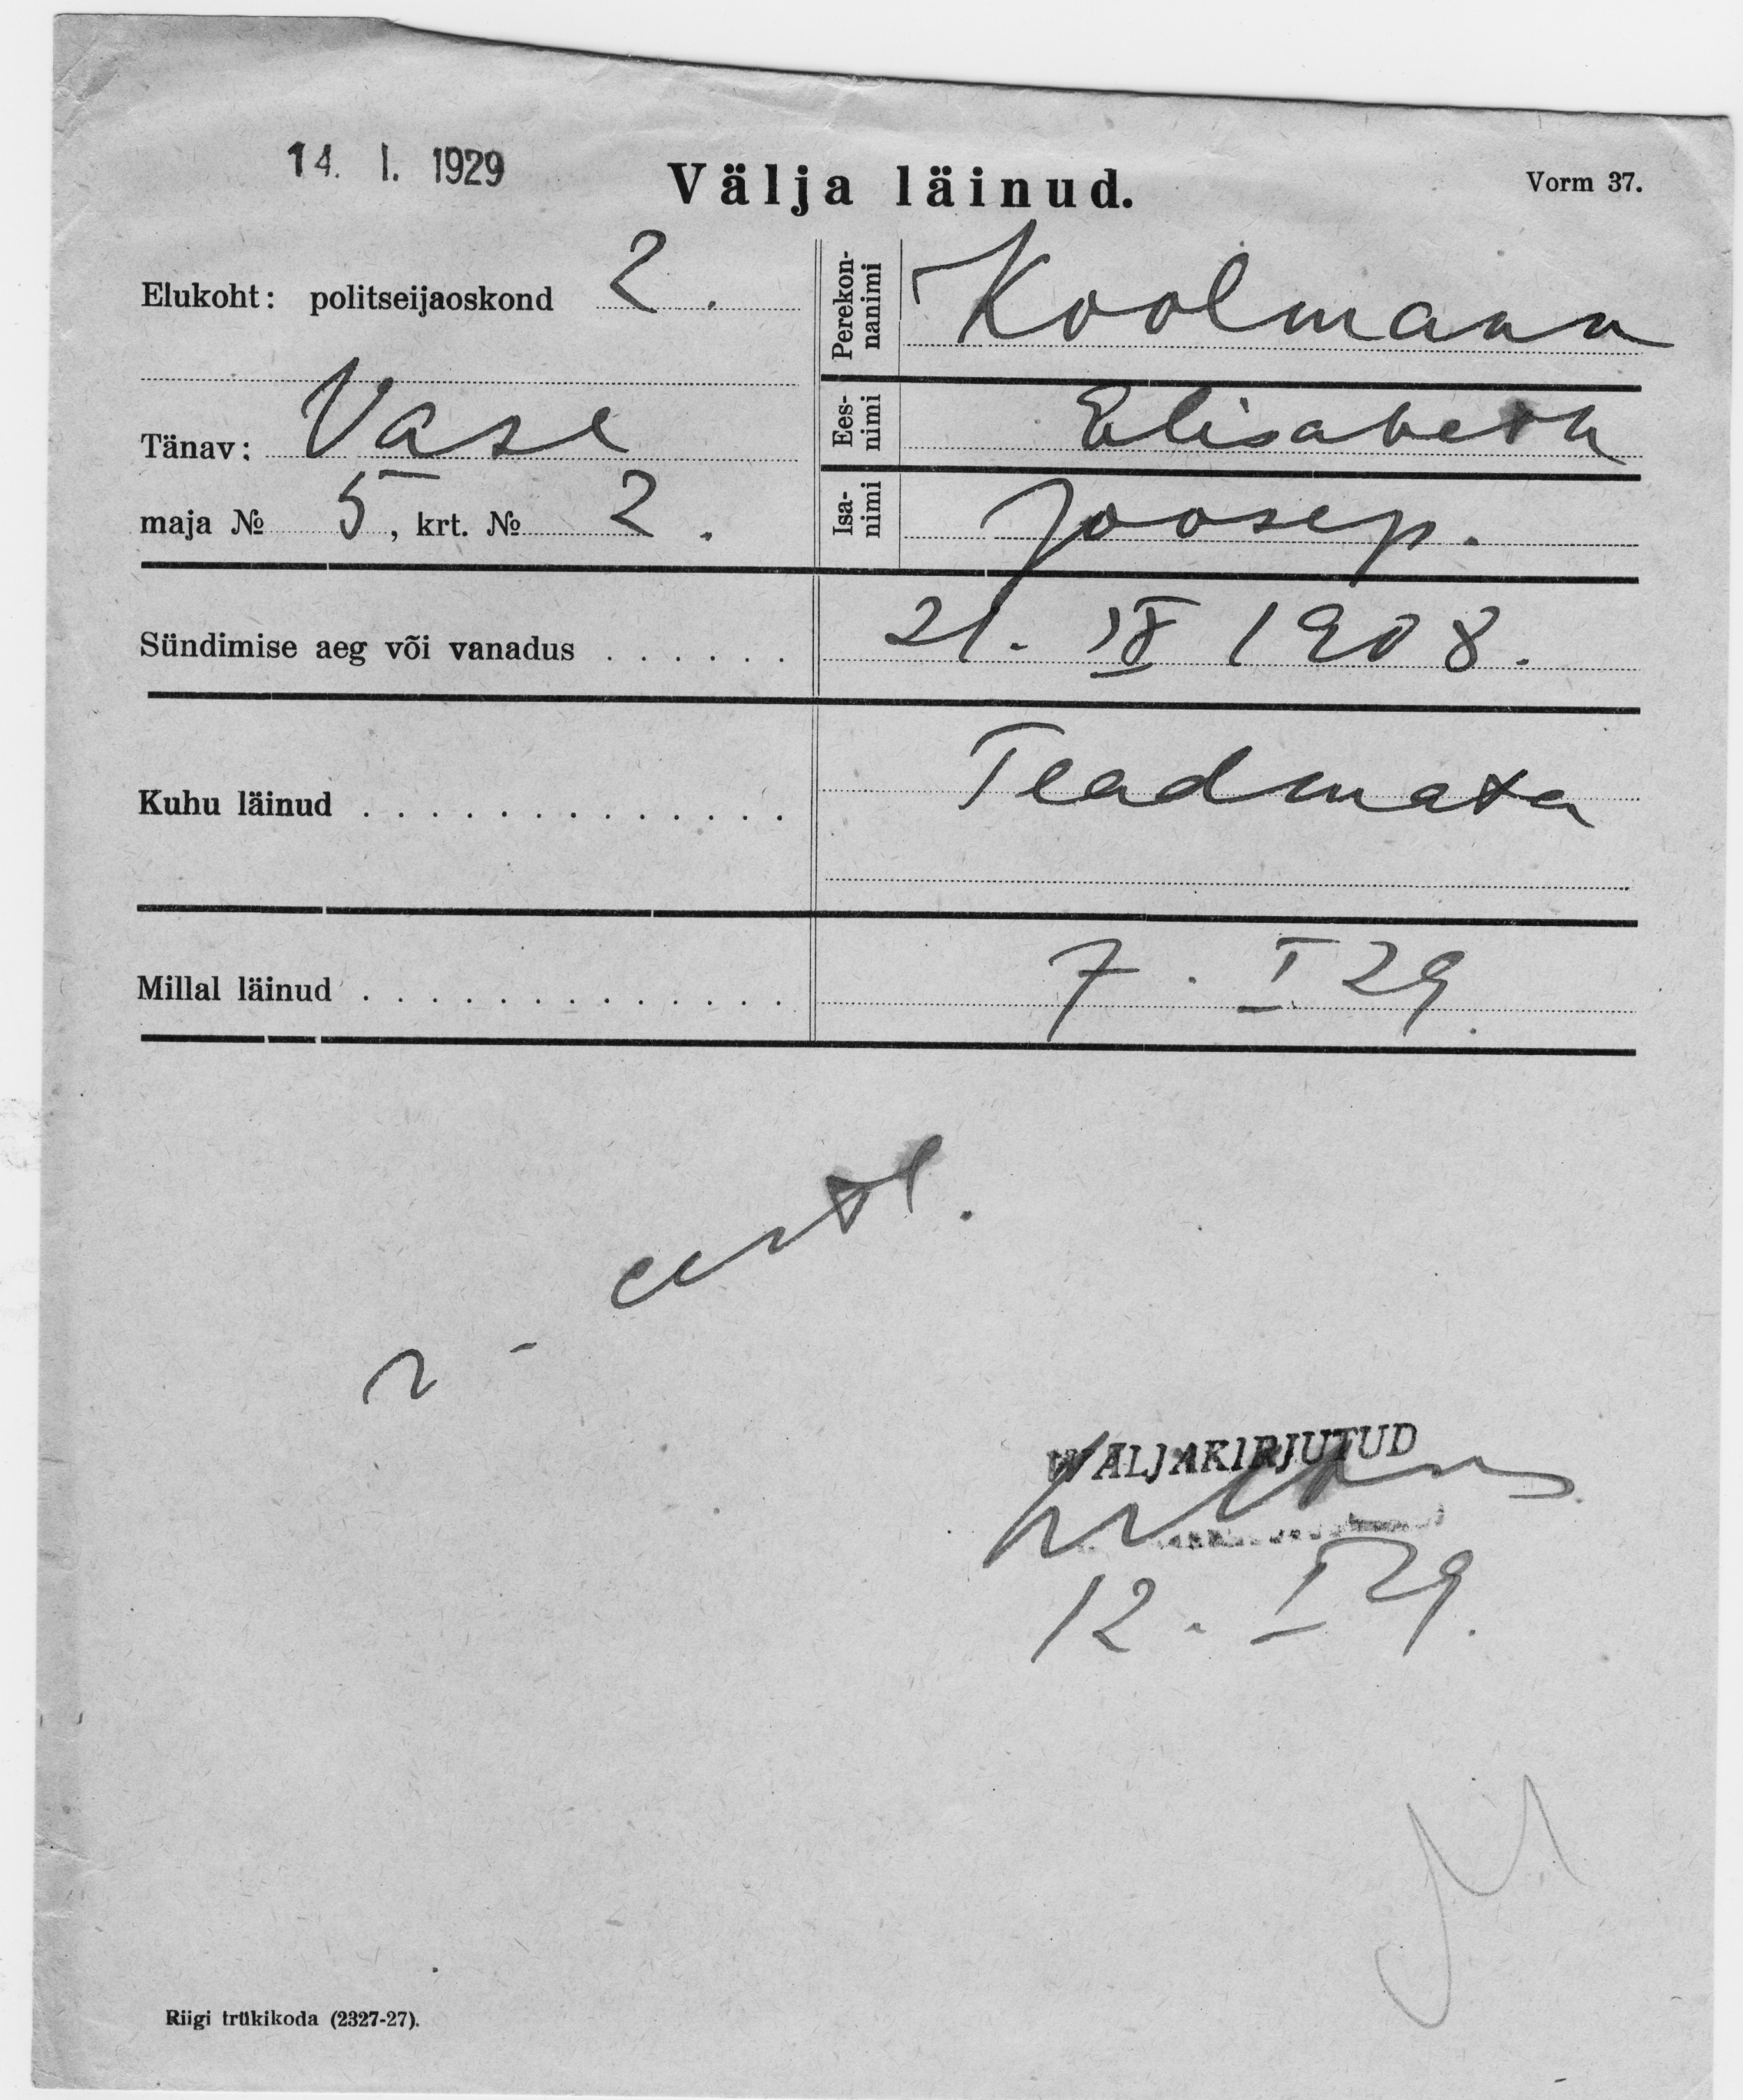 14. I. 1929
Välja läinud.
Vorm 37.
Elukoht: politseijaoskond 2.
Tänav: Vase
maja № 5, krt. № 2.
Perekon-
nanimi
Koolmann
Ees-
nimi
Elisabeth
Isa-
nimi
Joosep.
Sündimise aeg või vanadus . . . . . .
21. IX 1908.
Kuhu läinud . . . . . . . . . . . . . .
Teadmata
Millal läinud . . . . . . . . . . . . . .
7. I 29.
WÄLJAKIRJUTUD
12. I 29.
Riigi trükikoda (2327-27).